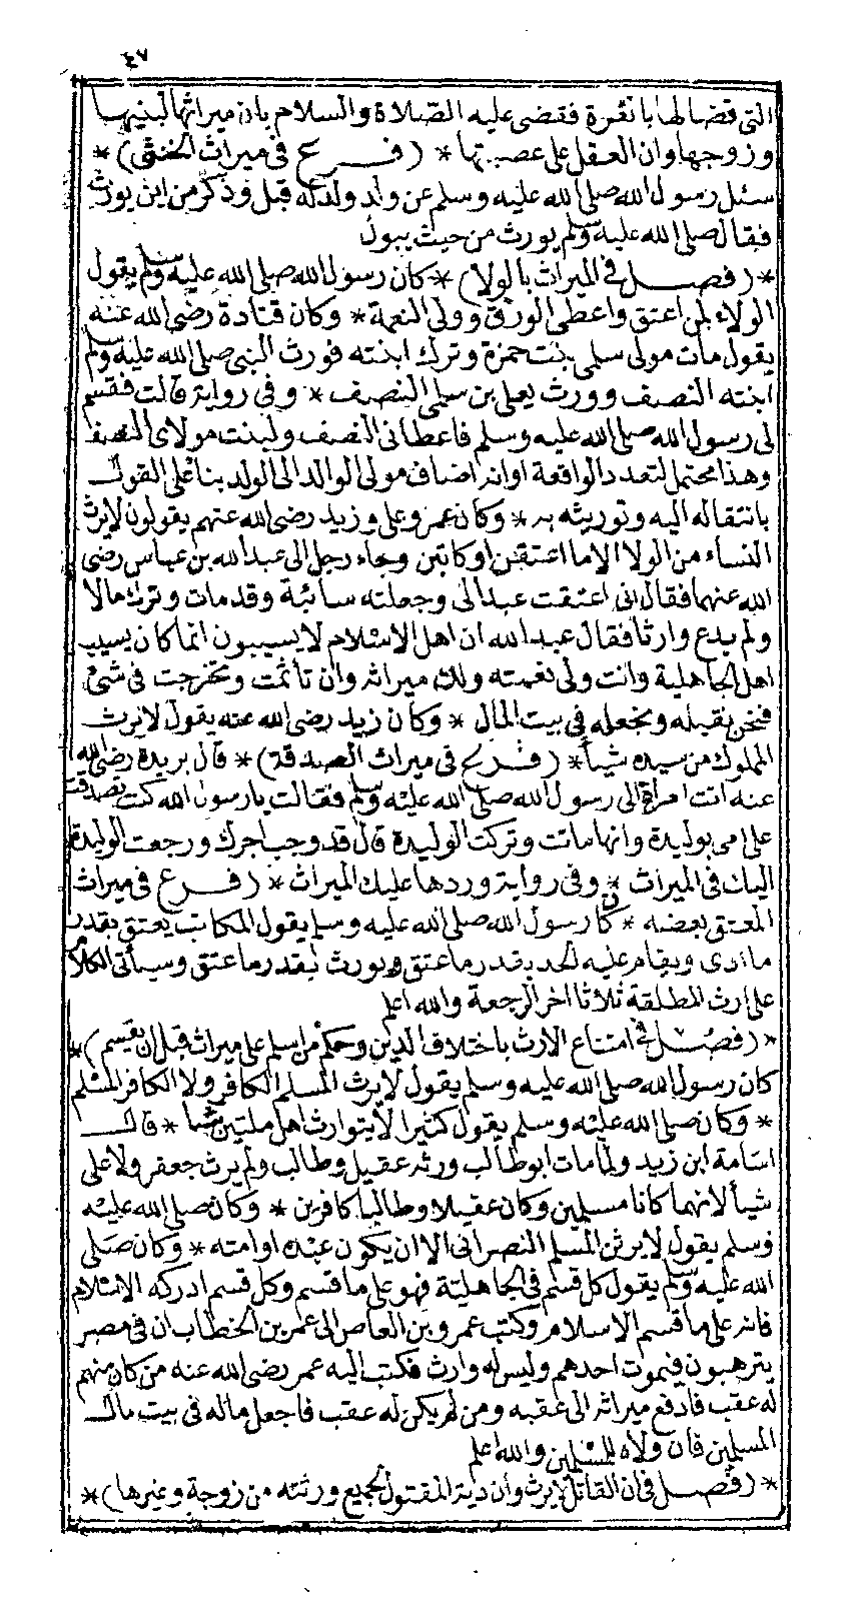 ٤٧
التى قضى لها بالغرة فقضى عليه الصلاة والسلام بان ميراثها لبنيها
وزوجها وان العقل على عصبتها * (فرع فى ميراث الخنثى) *
سئل رسول الله صلى الله عليه وسلم عن ولد ولد له قبل وذكر من اين يورث
فقال صلى الله عليه وسلم يورث من حيث يبول
* (فصل فى الميراث بالولاء) * كان رسول الله صلى الله عليه وسلم يقول
الولاء لمن اعتق واعطى الورق وولى النعمة * وكان قتادة رضى الله عنه
يقول مات مولى سلمى بنت حمزة وترك ابنته فورث النبى صلى الله عليه وسلم
ابنته النصف وورث يعلى بن سلمى النصف * وفى رواية قالت فقسم
لى رسول الله صلى الله عليه وسلم فاعطانى النصف ولبنت مولاى النصف
وهذا محتمل لتعدد الواقعة اوانه اضاف مولى الوالد الى الولد بنا على القول
بانتقاله اليه وتوريثه به * وكان عمر وعلى وزيد رضى الله عنهم يقولون لا يرث
النساء من الولا الا ما اعتقن او كاتبن وجاء رجل الى عبد الله بن عباس رضى
الله عنهما فقال انى اعتقت عبدا لى وجعلته سائبة وقد مات وترك مالا
ولم يدع وارثا فقال عبد الله ان اهل الاسلام لا يسيبون انما كان يسيب
اهل الجاهلية وانت ولى نعمته ولك ميراثه وان تأثمت وتحرجت فى شئ
فنحن نقبله ونجعله فى بيت المال * وكان زيد رضى الله عنه يقول لا يرث
المملوك من سيده شيأ * (فرع فى ميراث الصدقة) * قال بريدة رضى الله
عنه اتت امرأة الى رسول الله صلى الله عليه وسلم فقالت يا رسول الله كنت تصدقت
على امى بوليدة وانها ماتت وتركت الوليدة قال قد وجب اجرك ورجعت الوليدة
اليك فى الميراث * وفى رواية وردها عليك الميراث * (فرع فى ميراث
المعتق بعضه * كان رسول الله صلى الله عليه وسلم يقول المكاتب يعتق بقدر
ما ادى ويقام عليه الحد بقدر ما عتق ويورث بقدر ما عتق وسيأتى الكلام
على ارث المطلقة ثلاثا اخر الرجعة والله اعلم
* (فصل فى امتناع الارث باختلاف الدين وحكم من اسلم على ميراث قبل ان يقسم) *
كان رسول الله صلى الله عليه وسلم يقول لا يرث المسلم الكافر ولا الكافر المسلم
* وكان صلى الله عليه وسلم يقول كثيرا لا يتوارث اهل ملتين شيأ * قال
اسامة ابن زيد ولما مات ابو طالب ورثه عقيل وطالب ولم يرث جعفر ولا على
شيأ لانهما كانا مسلمين وكان عقيلا وطالبا كافرين * وكان صلى الله عليه
وسلم يقول لا يرث المسلم النصرانى الا ان يكون عبده او امته * وكان صلى
الله عليه وسلم يقول كل قسم فى الجاهلية فهو على ما قسم وكل قسم ادركه الاسلام
فانه على ما قسم الاسلام وكتب عمرو بن العاص الى عمر بن الخطاب ان فى مصر
يترهبون فيموت احدهم وليس له وارث فكتب اليه عمر رضى الله عنه من كان منهم
له عقب فادفع ميراثه الى عقبه ومن لم يكن له عقب فاجعل ماله فى بيت مال
المسلمين فان ولاه للمسلمين والله اعلم
* (فصل فى ان القاتل لا يرث وأن دية المقتول لجميع ورثته من زوجة وغيرها) *